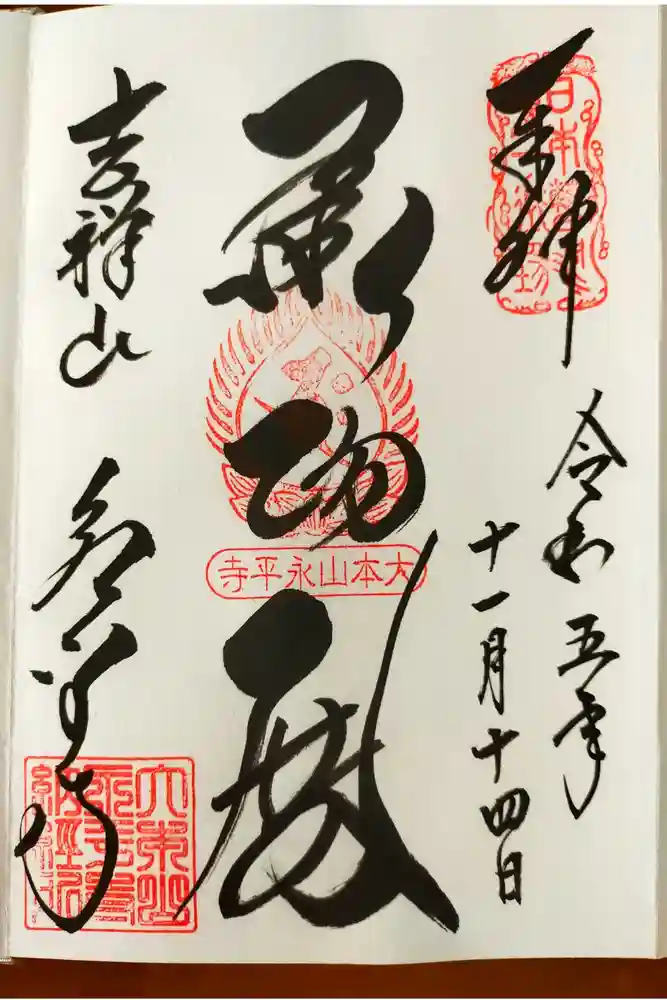 奉拝
令和五年
十一月十四日
承陽殿
大本山永平寺
吉祥山 永平寺